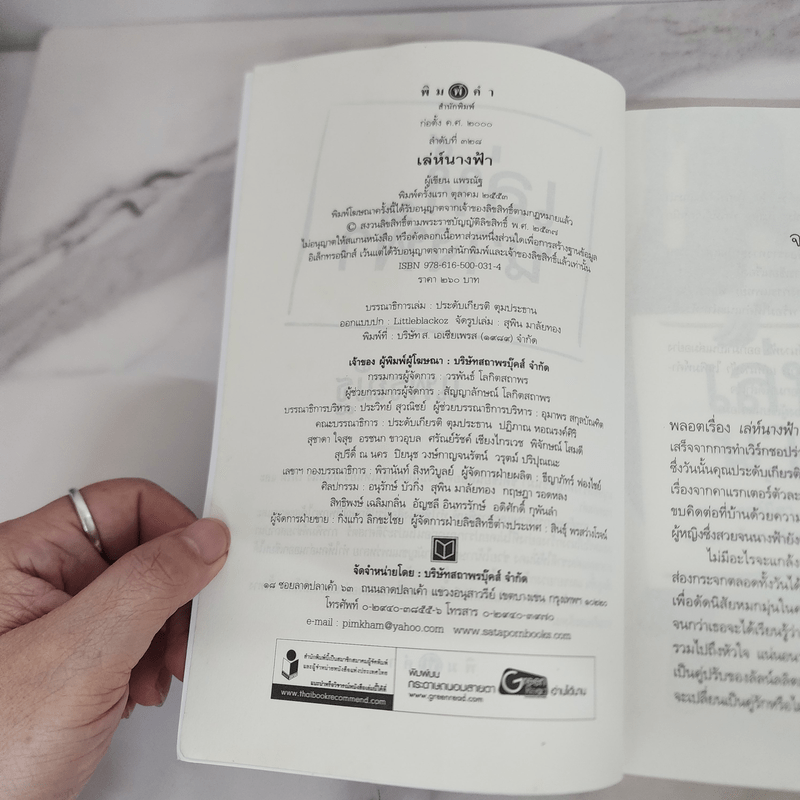 พิมพ์คำ
สำนักพิมพ์
ก่อตั้ง ค.ศ. ๒๐๐๐
ลำดับที่ ๓๒๗
เล่ห์นางฟ้า
ผู้เขียน แพรณัฐ
พิมพ์ครั้งแรก ตุลาคม ๒๕๕๓
พิมพ์โฆษณาครั้งนี้ได้รับอนุญาตจากเจ้าของลิขสิทธิ์ตามกฎหมายแล้ว
© สงวนลิขสิทธิ์ตามพระราชบัญญัติลิขสิทธิ์ พ.ศ. ๒๕๓๗
ไม่อนุญาตให้สแกนหนังสือ หรือคัดลอกเนื้อหาส่วนหนึ่งส่วนใดเพื่อการสร้างฐานข้อมูล
อิเล็กทรอนิกส์ เว้นแต่ได้รับอนุญาตจากสำนักพิมพ์และเจ้าของลิขสิทธิ์แล้วเท่านั้น
ISBN 978-616-500-031-4
ราคา ๒๖๐ บาท
บรรณาธิการเล่ม : ประดับเกียรติ ตุมประธาน
ออกแบบปก : Littleblackoz จัดรูปเล่ม : สุพิน มาลัยทอง
พิมพ์ที่ : บริษัท ส. เอเซียเพรส (๑๙๘๙) จำกัด
เจ้าของ ผู้พิมพ์ผู้โฆษณา : บริษัทสถาพรบุ๊คส์ จำกัด
กรรมการผู้จัดการ : วรพันธ์ โลกิตสถาพร
ผู้ช่วยกรรมการผู้จัดการ : สัญญาลักษณ์ โลกิตสถาพร
บรรณาธิการบริหาร : ประวิทย์ สุวณิชย์ ผู้ช่วยบรรณาธิการบริหาร : อุมาพร สกุลบัณฑิต
คณะบรรณาธิการ : ประดับเกียรติ ตุมประธาน ปฏิภาณ หอณรงค์ศิริ
สุชาดา ใจสุข อรชนก ขาวอุบล ศรัณย์รัชต์ เชียงไกรเวช พิจักษณ์ โสมดี
สุปรีดิ์ ณ นคร ปิยนุช วงษ์กาญจนรัตน์ วรุตม์ ปริปุณณะ
เลขาฯ กองบรรณาธิการ : พิรานันท์ สิงหวิบูลย์ ผู้จัดการฝ่ายผลิต : ธีญาภัทร์ ฟองไชย์
ศิลปกรรม : อนุรักษ์ บัวกิ่ง สุพิน มาลัยทอง กฤษฎา รอดหลง
สิทธิพงษ์ เฉลิมกลิ่น อัญชลี อินทรรักษ์ อติศักดิ์ กุพันลำ
ผู้จัดการฝ่ายขาย : กิ่งแก้ว ลิกขะไชย ผู้จัดการฝ่ายลิขสิทธิ์ต่างประเทศ : สินธุ์ พรสว่างโรจน์
จัดจำหน่ายโดย : บริษัทสถาพรบุ๊คส์ จำกัด
๑๘ ซอยลาดปลาเค้า ๖๓ ถนนลาดปลาเค้า แขวงอนุสาวรีย์ เขตบางเขน กรุงเทพฯ ๑๐๒๒๐
โทรศัพท์ ๐-๒๙๔๐-๓๘๕๕-๖ โทรสาร ๐-๒๙๔๐-๓๙๗๐
e-mail : pimkham@yahoo.com www.satapornbooks.com
สำนักพิมพ์นี้เป็นสมาชิกสมาคมผู้จัดพิมพ์
และผู้จำหน่ายหนังสือแห่งประเทศไทย
แนะนำหรือวิจารณ์หนังสือเล่มนี้ได้ที่
www.thaibookrecommend.com
พิมพ์บน
กระดาษถนอมสายตา
www.greenread.com
Green Read
อ่านได้นาน
พลอตเรื่อง เล่ห์นางฟ้า
เสร็จจากการทำเวิร์กชอปร่
ซึ่งวันนั้นคุณประดับเกียรติ
เรื่องจากคาแรกเตอร์ตัวละ
ขบคิดต่อที่บ้านด้วยความ
ผู้หญิงซึ่งสวยจนนางฟ้ายัง
ไม่มีอะไรจะแกล้ง
ส่องกระจกตลอดทั้งวันได้
เพื่อดัดนิสัยหมกมุ่นในค
จนกว่าเธอจะได้เรียนรู้ว่า
รวมไปถึงหัวใจ แน่นอน
เป็นคู่ปรับของลัลน์ลลิต
จะเปลี่ยนเป็นคู่รักหรือไม่